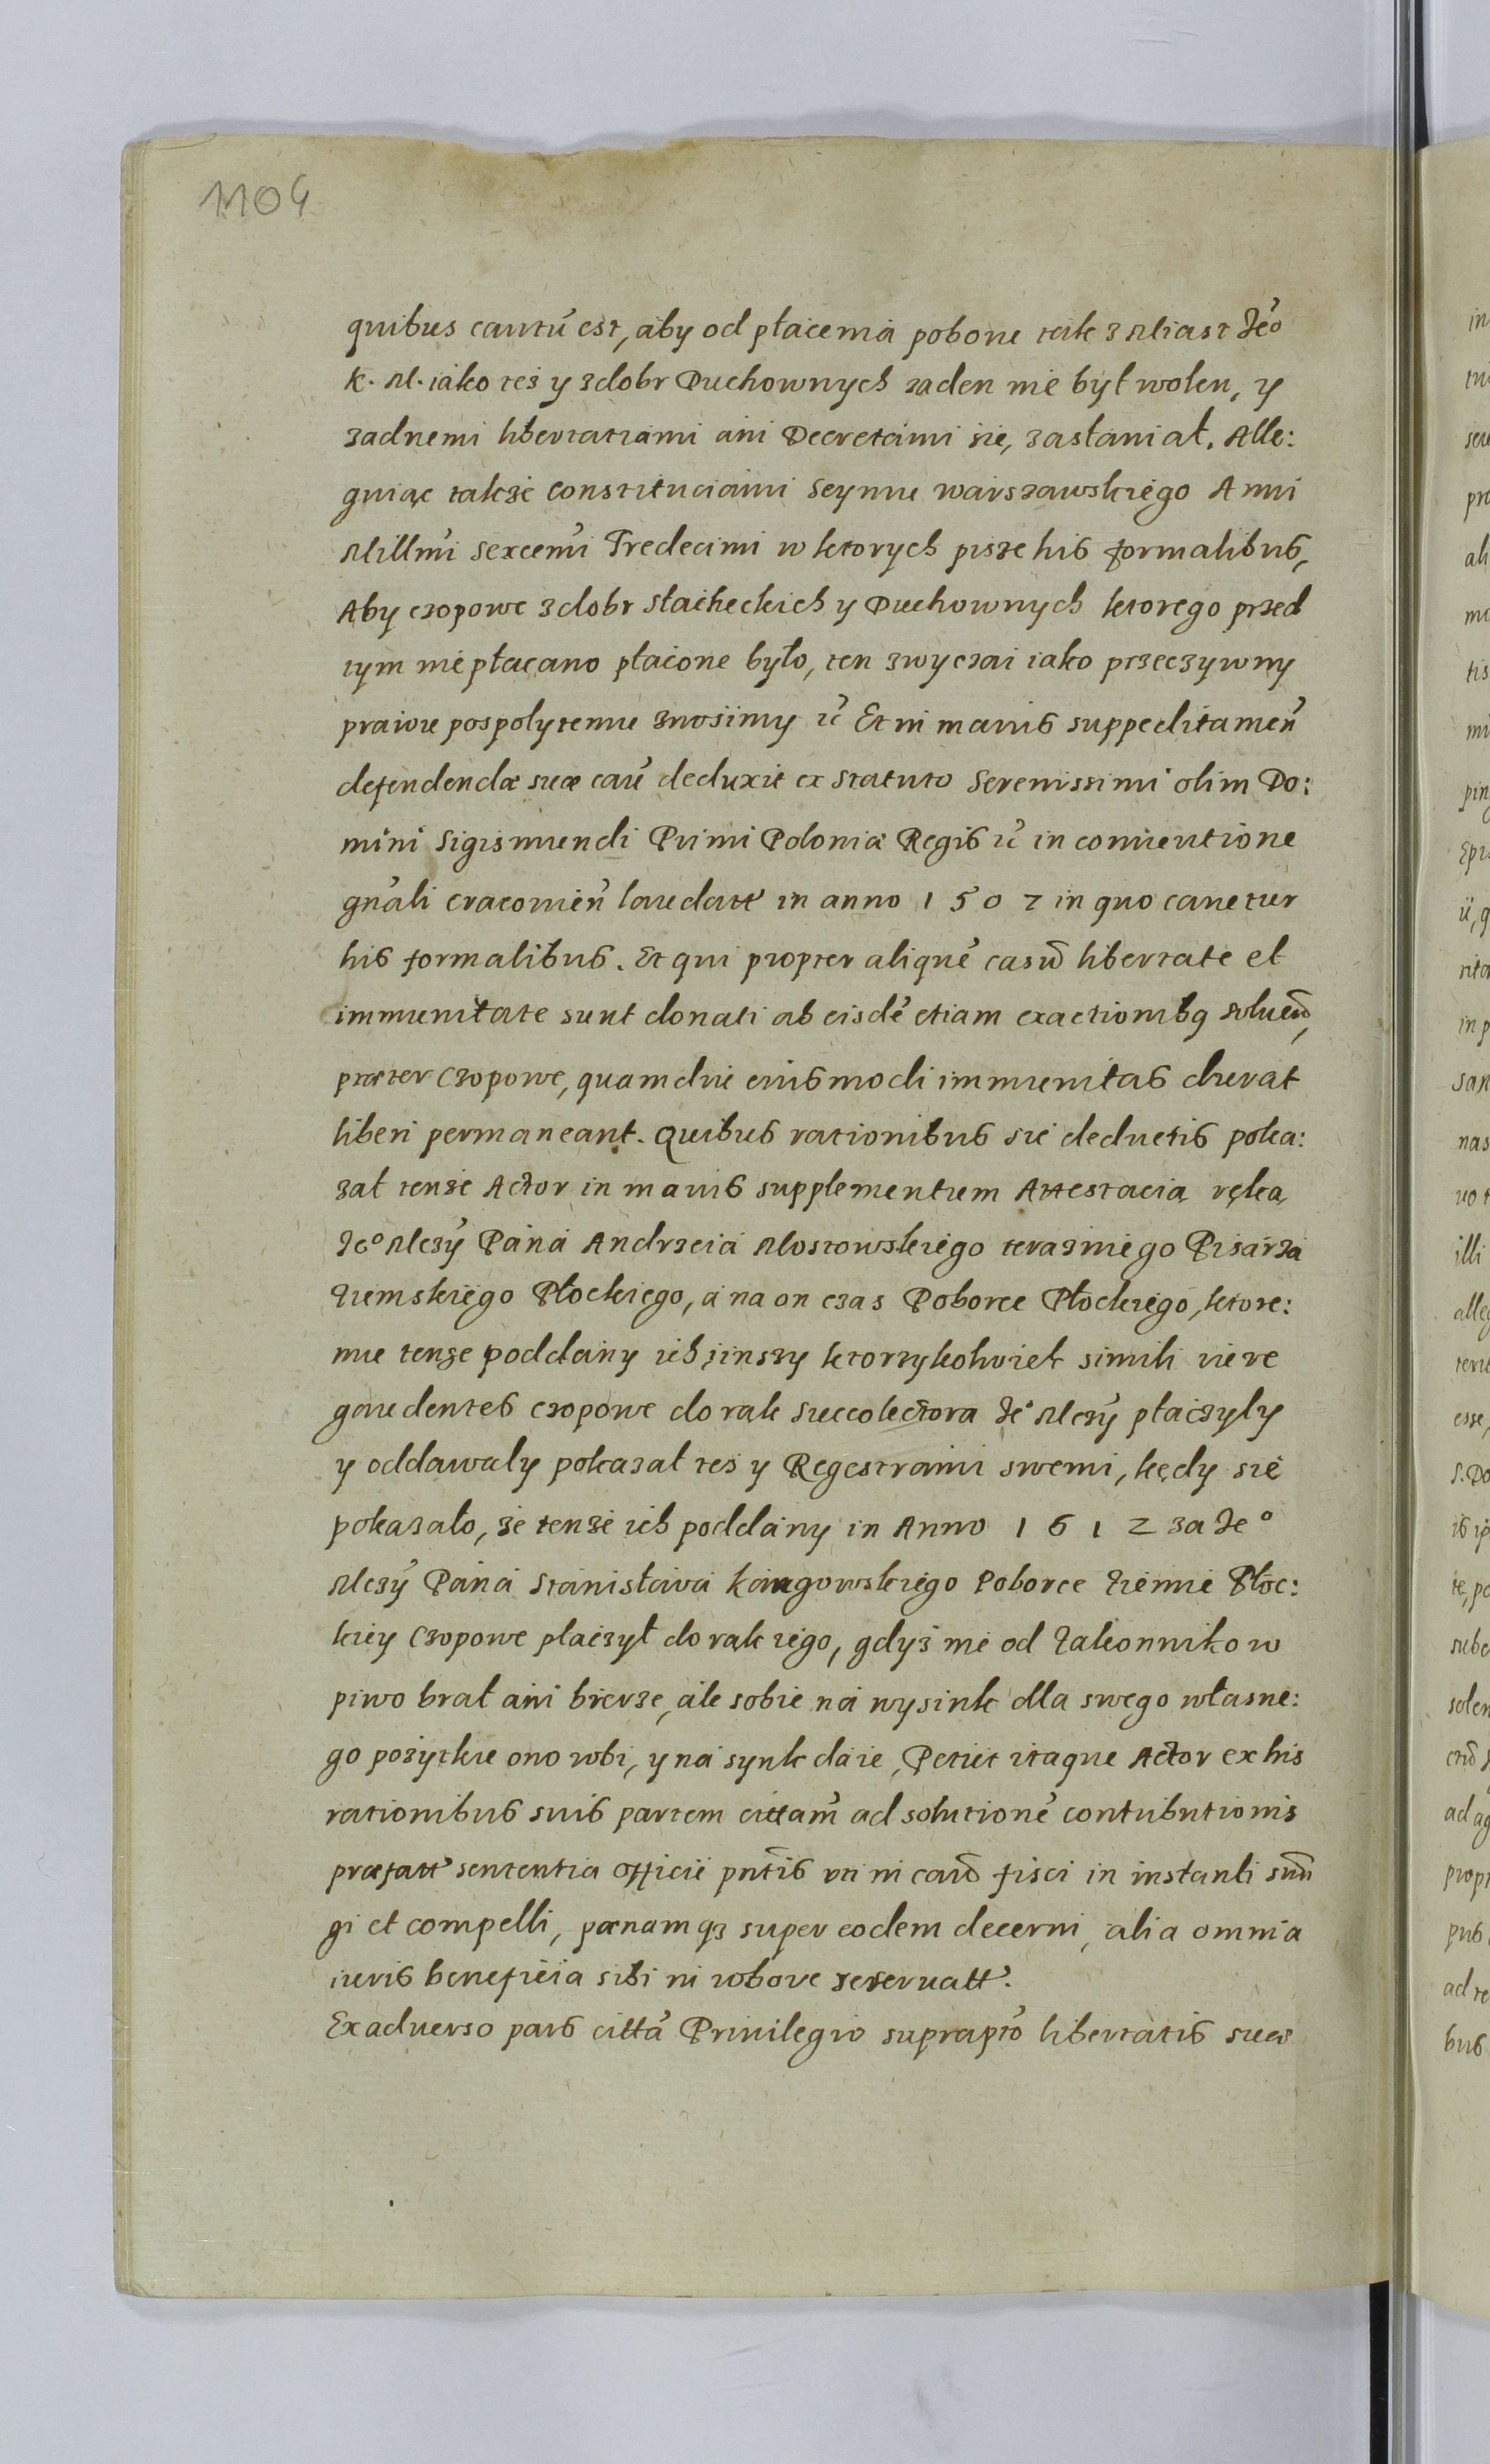 1104
quibus cautũ est, aby od płacenia poboru tak z Miast Jeo
K. M. iako też y zdobr Duchownych zaden nie był wolen, y
zadnemi libertatiami ani Decretami się, zasłaniał. Alle:
guiąc takze Constituciami Seymu warszawskiego Anni
Millmi sexcemi Tredecimi w ktorych pisze his formalibus,
Aby czopowe zdobr słacheckich y Duchownych ktorego przed
tym nie płacano płacone było, ten zwyczai iako przeczywny
prawu pospolytemu znosimy ec Et in maius suppeditamen
defendendæ suæ cau deduxit ex Statuto Serenissimi olim Do:
mini Sigismundi Primi Poloniæ Regis ec in conuentione
gnali cracouien laudatt in anno 1507 in quo cauetur
his formalibus. Et qui propter aliquẽ casũ libertate et
immunitate sunt donati ab eisdẽ etiam exactionibq soluend,
præter czopowe, quamdiu eiusmodi immunitas durat
liberi permaneant. Quibus rationibus sic deductis poka:
zał tenze Actor in maius supplementum Attestacią ręką
Jeo Mczy Pana Andrzeia Mostowskiego terazniego Pisarza
Ziemskiego Płockiego, a na on czas Poborce Płockiego, ktore:
mu tenze poddany ich, jinszy ktorzykolwiek simili iure
gaudentes czopowe do rak Succolectora Jeo Mczy płaczyly
y oddawaly pokazał tes y Regestrami swemi, kędy się
pokazało, że tenże ich poddany in Anno 1612 za Jeo
Mczy Pana Stanisława Kangowskiego Poborce Ziemie Płoc:
kiey Czopowe płaczył do rąk iego, gdyż nie od Zakonnikow
piwo brał ani bierze, ale sobie na wysink dla swego własne:
go pożytku ono robi, y na synk daie, Petiit itaque Actor ex his
rationibus suis partem cittam ad solutionẽ contributionis
præfatt sententia Officii pntis uti in caus fisci in instanti
gi et compelli, pœnamqz super eodem decerni, alia omnia
iuris beneficia sibi in robore reseruatt.
Ex aduerso pars citta Priuilegio suprapto libertatis suæ